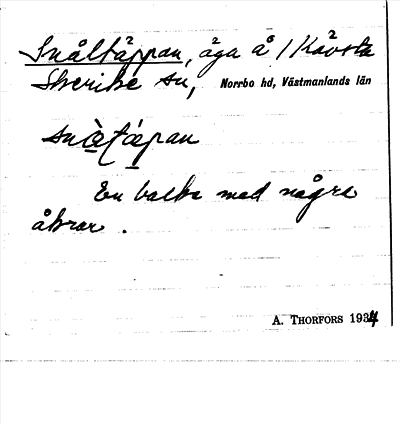 Snåltäppan, äga å 1 Kävsta
Skerike sn, Norrbo hd, Västmanlands län
En backe med några
åkrar .
A. THORFORS 1934